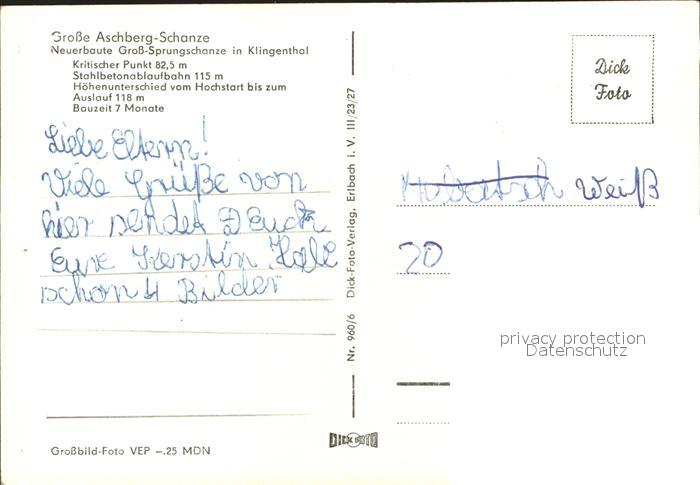 Große Aschberg-Schanze
Neuerbaute Groß-Sprungschanze in Klingenthal
Kritischer Punkt 82,5 m
Stahlbetonablaufbahn 115 m
Höhenunterschied vom Hochstart bis zum
Auslauf 118 m
Bauzeit 7 Monate
Liebe Eltern!
Viele Grüße von
hier sendet Euch
Eure Kerstin. Habe
schon 4 Bilder
Großbild-Foto VEP –.25 MDN
Nr. 960/6 Dick-Foto-Verlag, Erlbach i. V. III/23/27
DICK FOTO
Dick
Foto
Weiß
20
privacy protection
Datenschutz